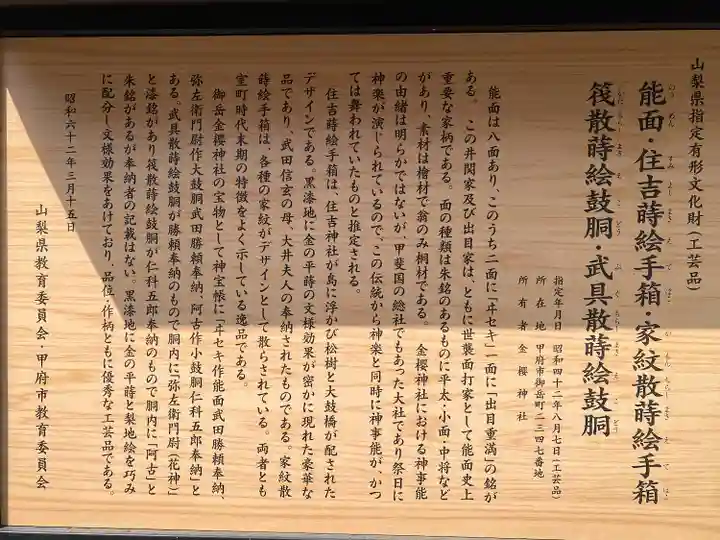 山梨県指定有形文化財(工芸品)
能面・住吉蒔絵手箱・家紋散蒔絵手箱
筏散蒔絵鼓胴・武具散蒔絵鼓胴
指定年月日 昭和四十二年八月七日(工芸品)
所在地 甲府市御岳町二三四七番地
所有者 金櫻神社
能面は八面あり、このうち二面に「ヰセキ」一面に「出目重満」の銘が
ある。この井関家及び出目家は、ともに世襲面打家として能面史上
重要な家柄である。面の種類は朱銘のあるものに平太・小面・中将など
があり、素材は檜材で翁のみ桐材である。 金櫻神社における神事能
の由緒は明らかではないが、甲斐国の総社でもあった大社であり祭日に
神楽が演じられているので、この伝統から神楽と同時に神事能が、かつ
ては舞われていたものと推定される。
住吉蒔絵手箱は、住吉神社が島に浮かび松樹と大鼓橋が配された
デザインである。黒漆地に金の平蒔の文様効果が密かに現れた豪華な
品であり、武田信玄の母、大井夫人の奉納されたものである。家紋散
蒔絵手箱は、各種の家紋がデザインとして散らされている。両者とも
室町時代末期の特徴をよく示している逸品である。
御岳金櫻神社の宝物として神宝帳に「ヰセキ作能面武田勝頼奉納、
弥左衛門尉作大鼓胴武田勝頼奉納、阿古作小鼓胴仁科五郎奉納」と
ある。武具散蒔絵鼓胴が勝頼奉納のもので胴内に「弥左衛門尉(花神)」
と漆銘があり筏散蒔絵鼓胴が仁科五郎奉納のもので胴内に「阿古」と
朱銘があるが奉納者の記載はない。黒漆地に金の平蒔と梨地絵を巧み
に配分し文様効果をあげており、品位・作柄ともに優秀な工芸品である。
昭和六十二年三月十五日
山梨県教育委員会・甲府市教育委員会